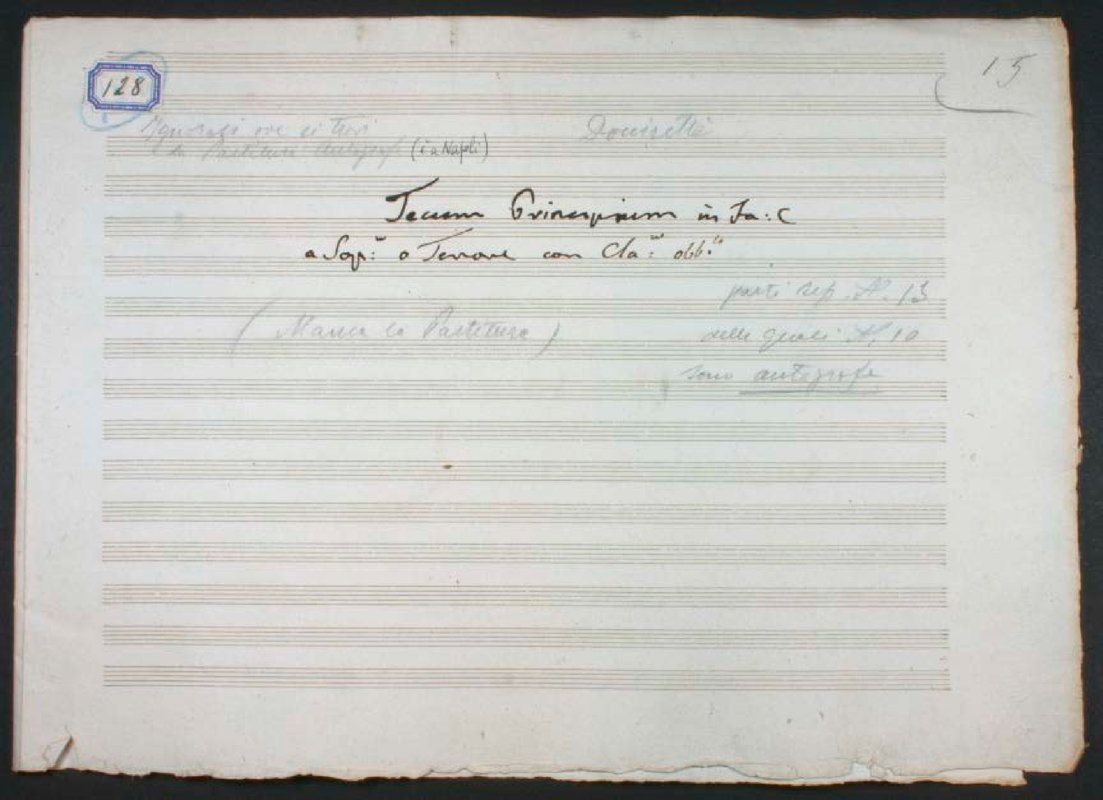 128
15
Ignorasi ove si trovi
la Partitura autografa (è a Napoli)
Donizetti
Tecum Principium in Fa: C
a Sop:no o Tenore con Cla:tto obb.to
parti sep. N. 13
(Manca la Partitura)
delle quali N. 10
sono autografe